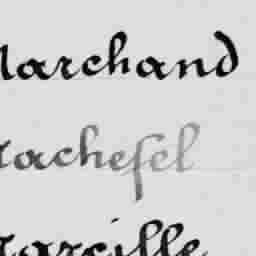 Marchand
Machefel
Marcille